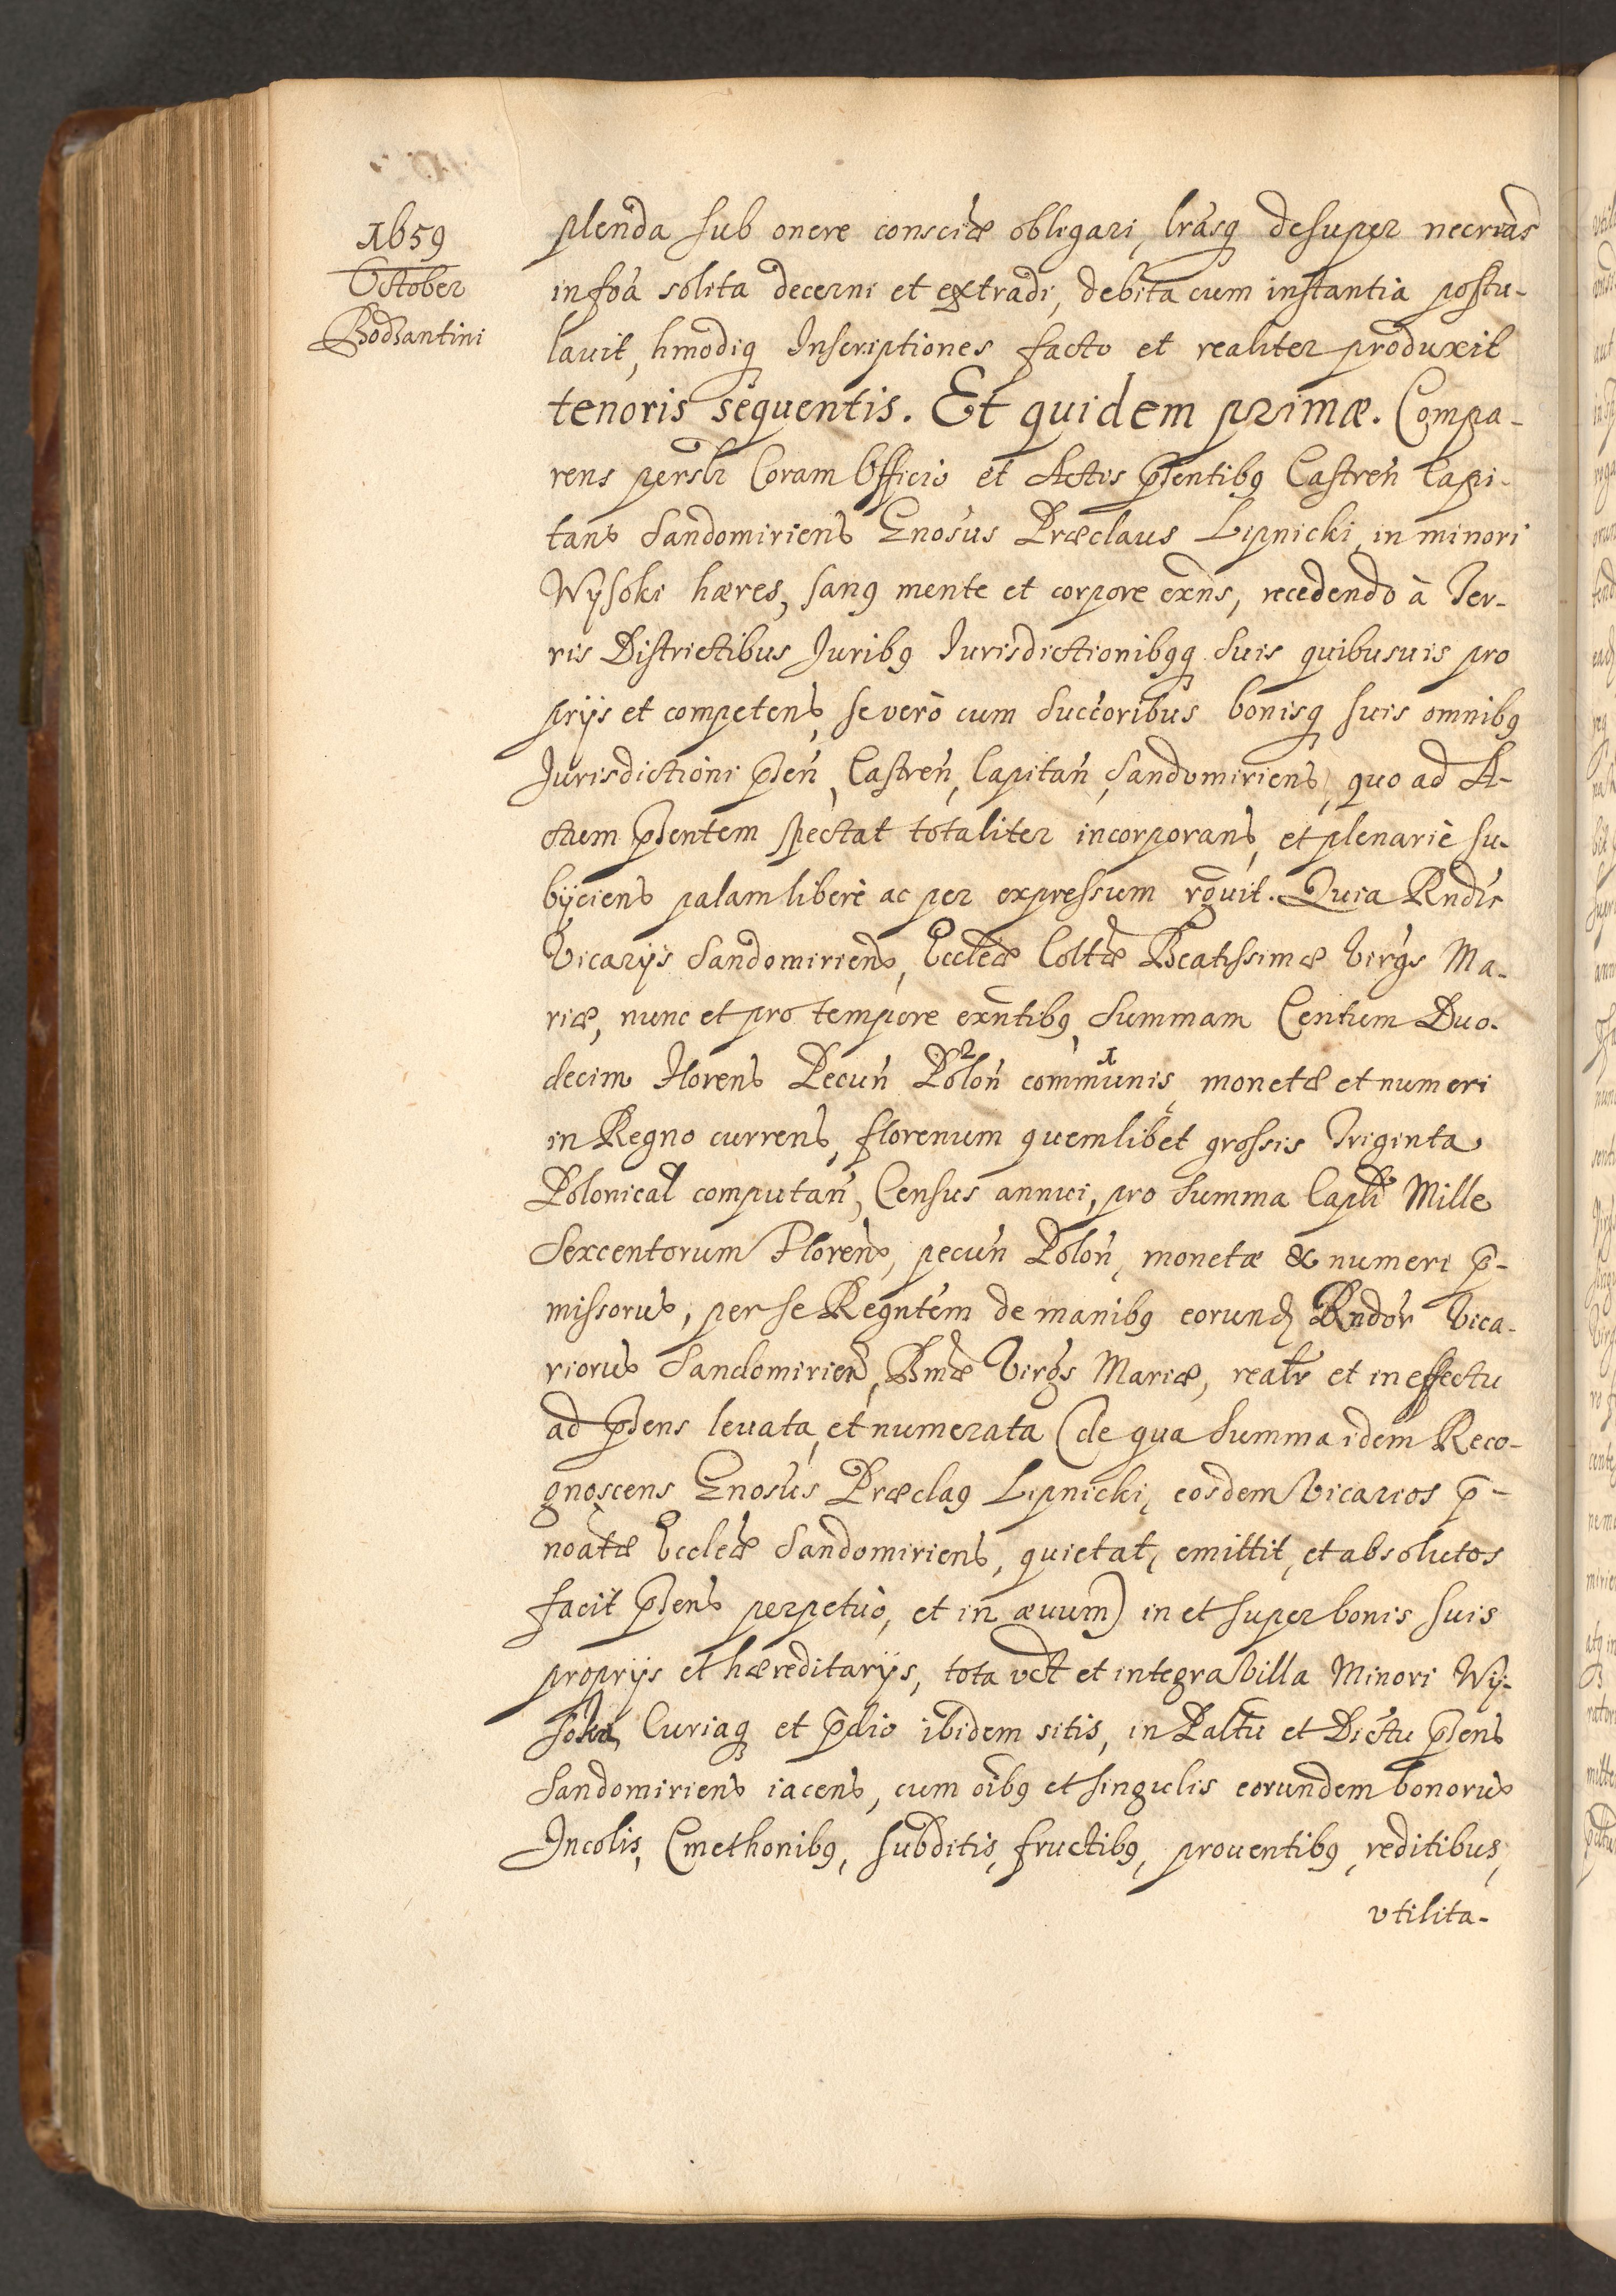 1659
October
Bodzantini
plenda sub onere consciæ obligari, lrasq desuper necrias
in foa solita decerni et extradi, debita cum instantia postu-
lavit, hmodiq Inscriptiones facto et realiter produxit
tenoris sequentis. Et quidem primæ. Compa-
rens persłr Coram Officio et Actis pñtibq Castreñ Capi-
tans Sandomiriens Gnosus Præclaus Lipnicki, in minori
Wysoki hæres, sanq mente et corpore exñs, recedendo à Ter-
ris Districtibus Juribq Iurisdictionibqq suis quibusuis pro
prijs et competens, se verò cum succoribus bonisq suis omnibq
Jurisdictioni p̃sen, Castreñ, Capitañ, Sandomiriens, quo ad A-
ctum p̃sentem spectat totaliter incorporans, et plenariè su-
bijciens palam liberè ac per expressum rgvit. Quia Rndis
Vicarijs Sandomiriens, Eccleæ Coltæ Beatissimæ Virgs Ma-
riæ, nunc et pro tempore exñtibq, Summam Centum Duo-
decim Florens Pecuñ Poloñ 2 communis 1 monetæ et numeri
in Regno currens, florenum quemlibet grossis Triginta
Polonical computañ, Census annui, pro Summa Capłi Mille
Sexcentorum Florens, pecuñ Poloñ, monetæ & numeri p̃-
missorus, per se Regntem de manibq eorund Rndor Vica-
riorus Sandomirien, Bmæ Virgs Mariæ, realr et in effectu
ad p̃sens levata, et numerata (de qua Summa idem Reco-
gnoscens Gnosus Præclaq Lipnicki, eosdem Vicarios p̃-
noatæ Eccleæ Sandomiriens, quietat, emittit, et absolutos
facit p̃sens perpetuò, et in ævum) in et super bonis suis
proprijs et hæreditarijs, tota vdt et integra Villa Minori Wy-
soka, Curiaq et p̃dio ibidem sitis, in Paltu et Dictu p̃sens
Sandomiriens iacens, cum oibq et singulis eorundem bonorus
Incolis, Cmethonibq, subditis, fructibq, proventibq, reditibus,
vtilita-